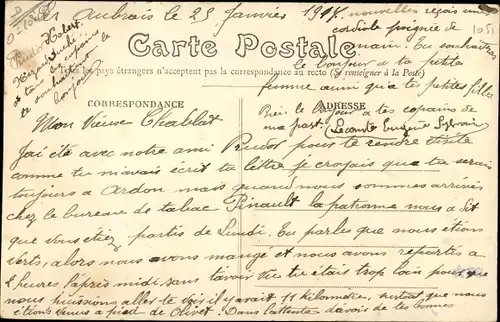 Aubrais le 25 Janvier 1907
Carte Postale
Tous les pays étrangers n'acceptent pas la correspondance au recto (Se renseigner à la Poste)
CORRESPONDANCE
ADRESSE
Mon Vieux Chablat
J'ai été avec notre ami Prudor pour te rendre visite
comme tu m'avais écrit ta lettre je croyais que tu serais
toujours a Ardon mais quand nous sommes arrivés
chez le bureau de tabac Pinault la patronne nous a dit
que vous étiez partis de Lundi. Tu parles que nous étions
verts, alors nous avons mangé et nous avons repartis a
2 heures l'après midi sans t'avoir vu tu étais trop loin pour que
nous puissions aller te voir il y avait 11 kilomètre, surtout que nous
étions venus a pied de Olivet. Dans l'attente d'avoir de tes bonnes
nouvelles reçois une
cordiale poignée de
main. Tu souhaiteras
le bonjour a ta petite
femme ainsi qu'a tes petites filles
Bien le bonjour a tes copains de
ma part. Lecomte Eugène Sylvain
et ta
les copains
te souhaitent
bonjour
1051